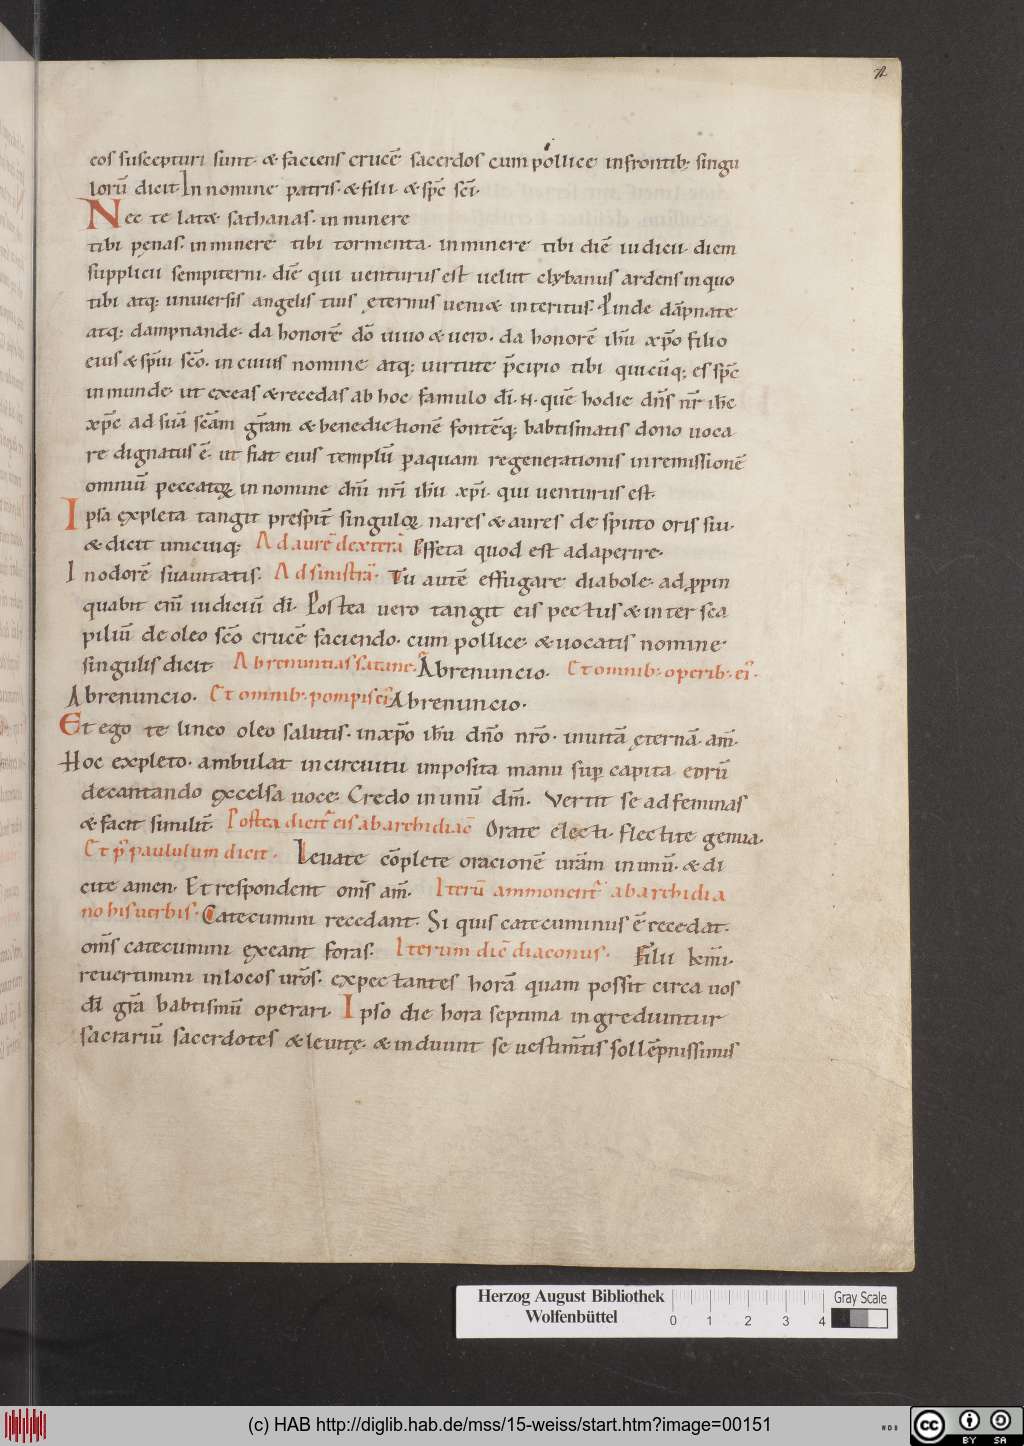 72
eos suscepturi sunt. & faciens crucē sacerdos cum pollice in frontib; singu
lorū dicit In nomine patris. & filii. & sp̄c sc̄i.
Nec te lat& sathanas. in minere
tibi pęnas. in minere tibi tormenta. in minere tibi diē iudicii. diem
supplicii sempiterni. diē qui uenturus est uelut clybanus ardens in quo
tibi atq; uniuersis angelis tuis ęternus ueni& interitus. Pinde dāpnate
atq; dampnande. da honorē dō uiuo & uero. da honorē ihū xp̄o filio
eius & sp̄iu sc̄o. in cuius nomine atq; uirtute p̄cipio tibi quicūq; es sp̄c
inmunde. ut exeas & recedas ab hoc famulo dī. N. quē hodie dn̄s nr̄ ihc̄
xp̄c ad suā sc̄am gr̄am & benedictionē fontēq; babtismatis dono uoca
re dignatus ē. ut fiat eius templū p aquam regenerationis in remissionē
omniū peccatoꝝ in nomine dn̄i nr̄i ihū xp̄i. qui uenturus est.
Ipsa expleta tangit presp̄it singuloꝝ nares & aures de sputo oris sui.
& dicit unicuiq; Ad aurē dexterā Effeta quod est adaperire.
In odorē suauitatis. Ad sinistrā. Tu autē effugare diabole. ad ꝓpin
quabit eni̅ iudiciū dī. Postea uero tangit eis pectus & inter sca
piliū de oleo sc̄o crucē faciendo. cum pollice. & uocatis nomine
singulis dicit. Abrenuntias satane. ꝶ Abrenuncio. Et omnib; operib; ei᷒.
Abrenuncio. Et omnib; pompis ei᷒ Abrenuncio.
Et ego te lineo oleo salutis. in xp̄o ihū dn̄o nr̄o. in uitā ęternā. am̄.
Hoc expleto. ambulat in circuitu imposita manu sup capita eorū
decantando excelsa uoce. Credo in unū dm̄. Vertit se ad feminas
& facit similit̄. Postea dicit᷒ eis ab archidiac̄ Orate electi. flectite genua.
Et p᷒ paululum dicit. Leuate cōplete orationē urām in unū. & di
cite amen. Et respondent om̄s am̄. Iterū ammonent᷒ ab archidia
no his uerbis. Catecumini recedant. Si quis catecuminus ē recedat.
om̄s catecumini exeant foras. Iterum dic̄ diaconus. Filii km̄i.
reuertimini in locos uros̄. expectantes horā quam possit circa uos
dī grā babtismū operari. Ipso die hora septima ingrediuntur
sacrariū sacerdotes & leuitę. & induunt se uestim̄tis sollēpnissimis
Herzog August Bibliothek
Wolfenbüttel
0 1 2 3 4
Gray Scale
(c) HAB http://diglib.hab.de/mss/15-weiss/start.htm?image=00151
WDB
cc BY SA